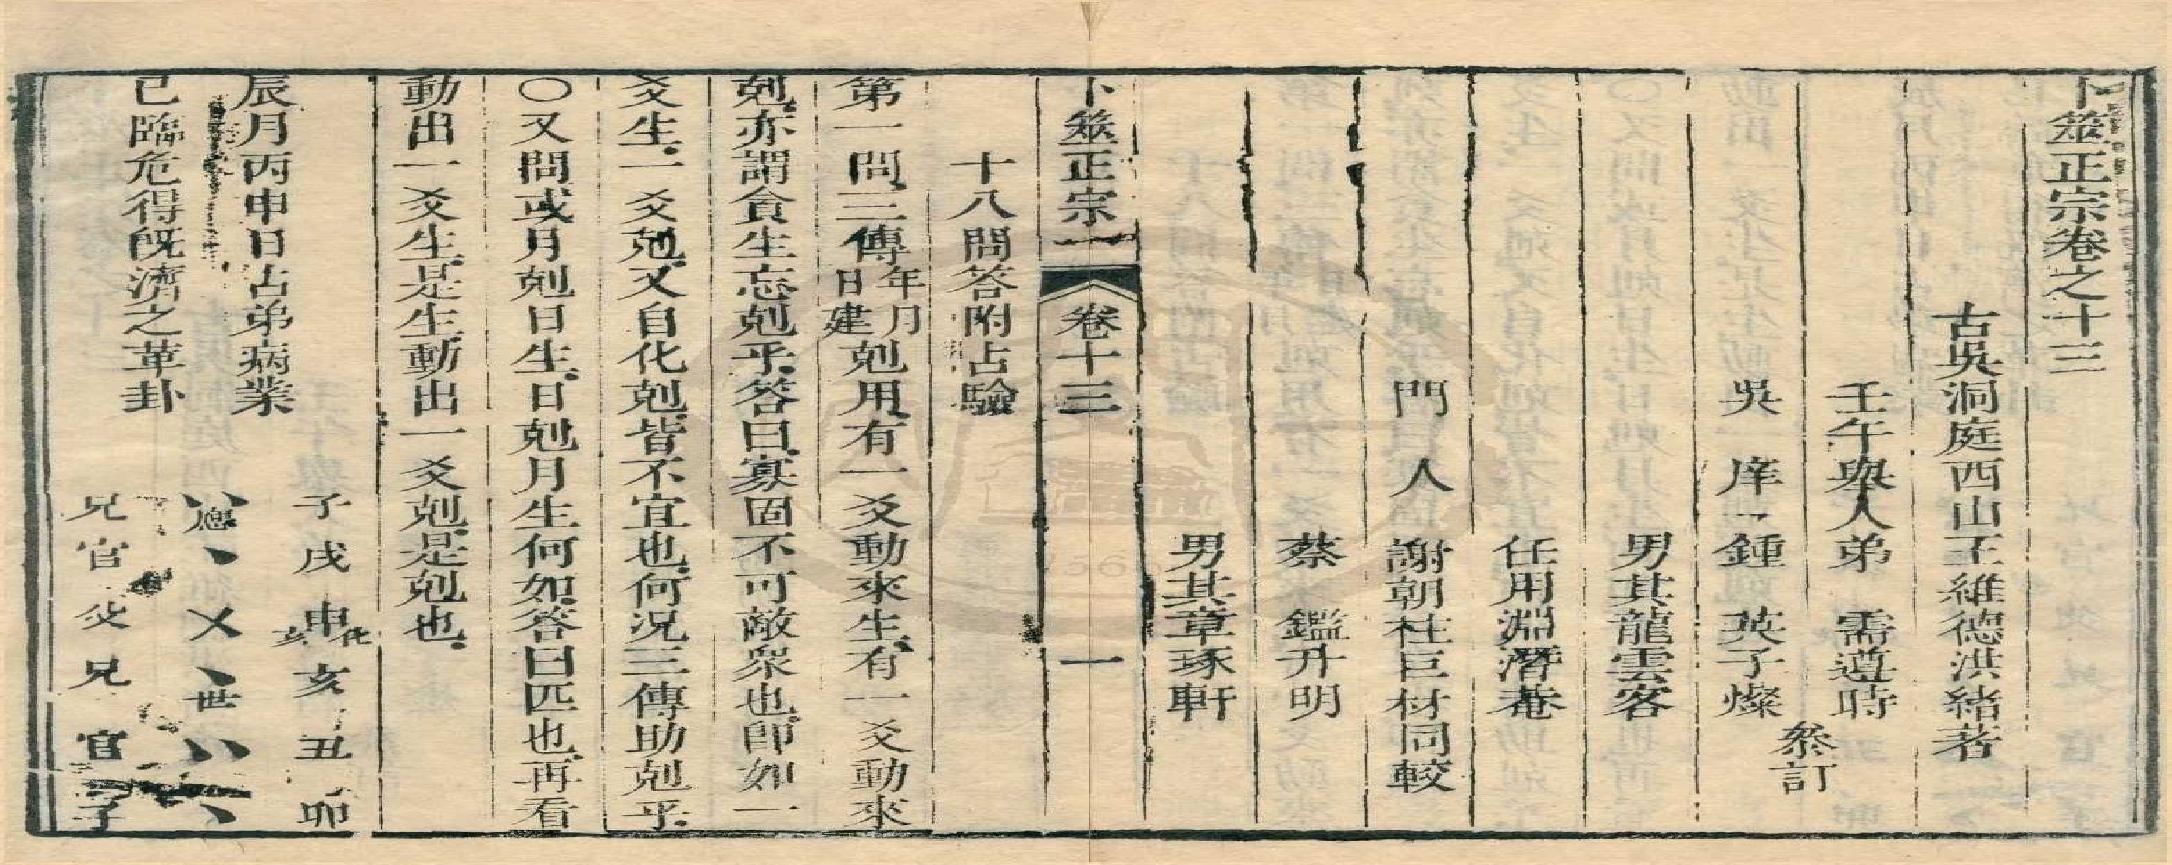 卜筮正宗卷之十三
古吳洞庭西山王維德洪緒著
壬午舉人弟 需遵時
叅訂
吳 庠 鍾 英子燦
男其龍雲客
任用淵潛菴
門 人 謝朝柱巨材同較
蔡 鑑升明
男其章琢軒
卜筮正宗 卷十三 一
十八問答附占驗
第一問三傳年月日建剋用有一爻動來生有一爻動來
剋亦謂貪生忘剋乎答曰寡固不可敵衆也卽如一
爻生一爻剋又自化剋皆不宜也何況三傳助剋乎
〇又問或月剋日生日剋月生何如答曰匹也再看
動出一爻生是生動出一爻剋是剋也
辰月丙申日占弟病業
已臨危得旣濟之革卦
子戌申化亥亥丑卯
應 世
兄官父兄官子